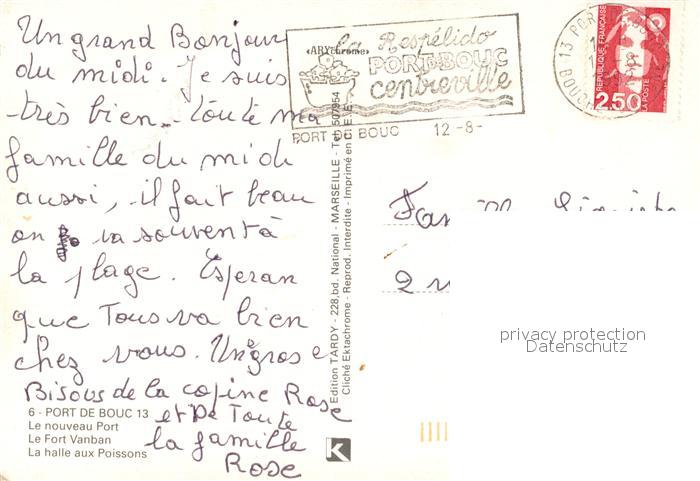 Un grand Bonjour
du midi. Je suis
très bien. toute ma
famille du midi
aussi, il fait beau
on va souvent à
la plage. Esperan
que Tous va bien
chez vous. Un gros
Bisous de la copine Rose
et De Toute
la famille
Rose
6 - PORT DE BOUC 13
Le nouveau Port
Le Fort Vanban
La halle aux Poissons
«ARYchrome»
la Respélido
PORT-DE-BOUC
centreville
PORT DE BOUC 12-8-
Edition TARDY - 228, bd. National - MARSEILLE - Tel. 507954
Cliché Ektachrome - Reprod. Interdite - Imprimé en C.E.E.
K
13 PORT
BOUCH
REPUBLIQUE FRANÇAISE
2,50
LA POSTE
privacy protection
Datenschutz